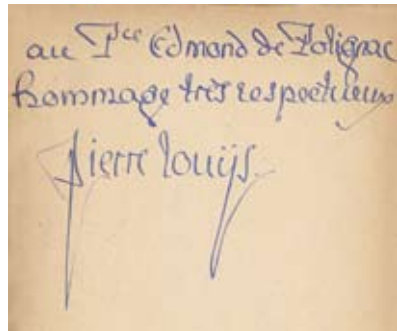 au Pce Edmond de Polignac
hommage très respectueux
Pierre Louÿs